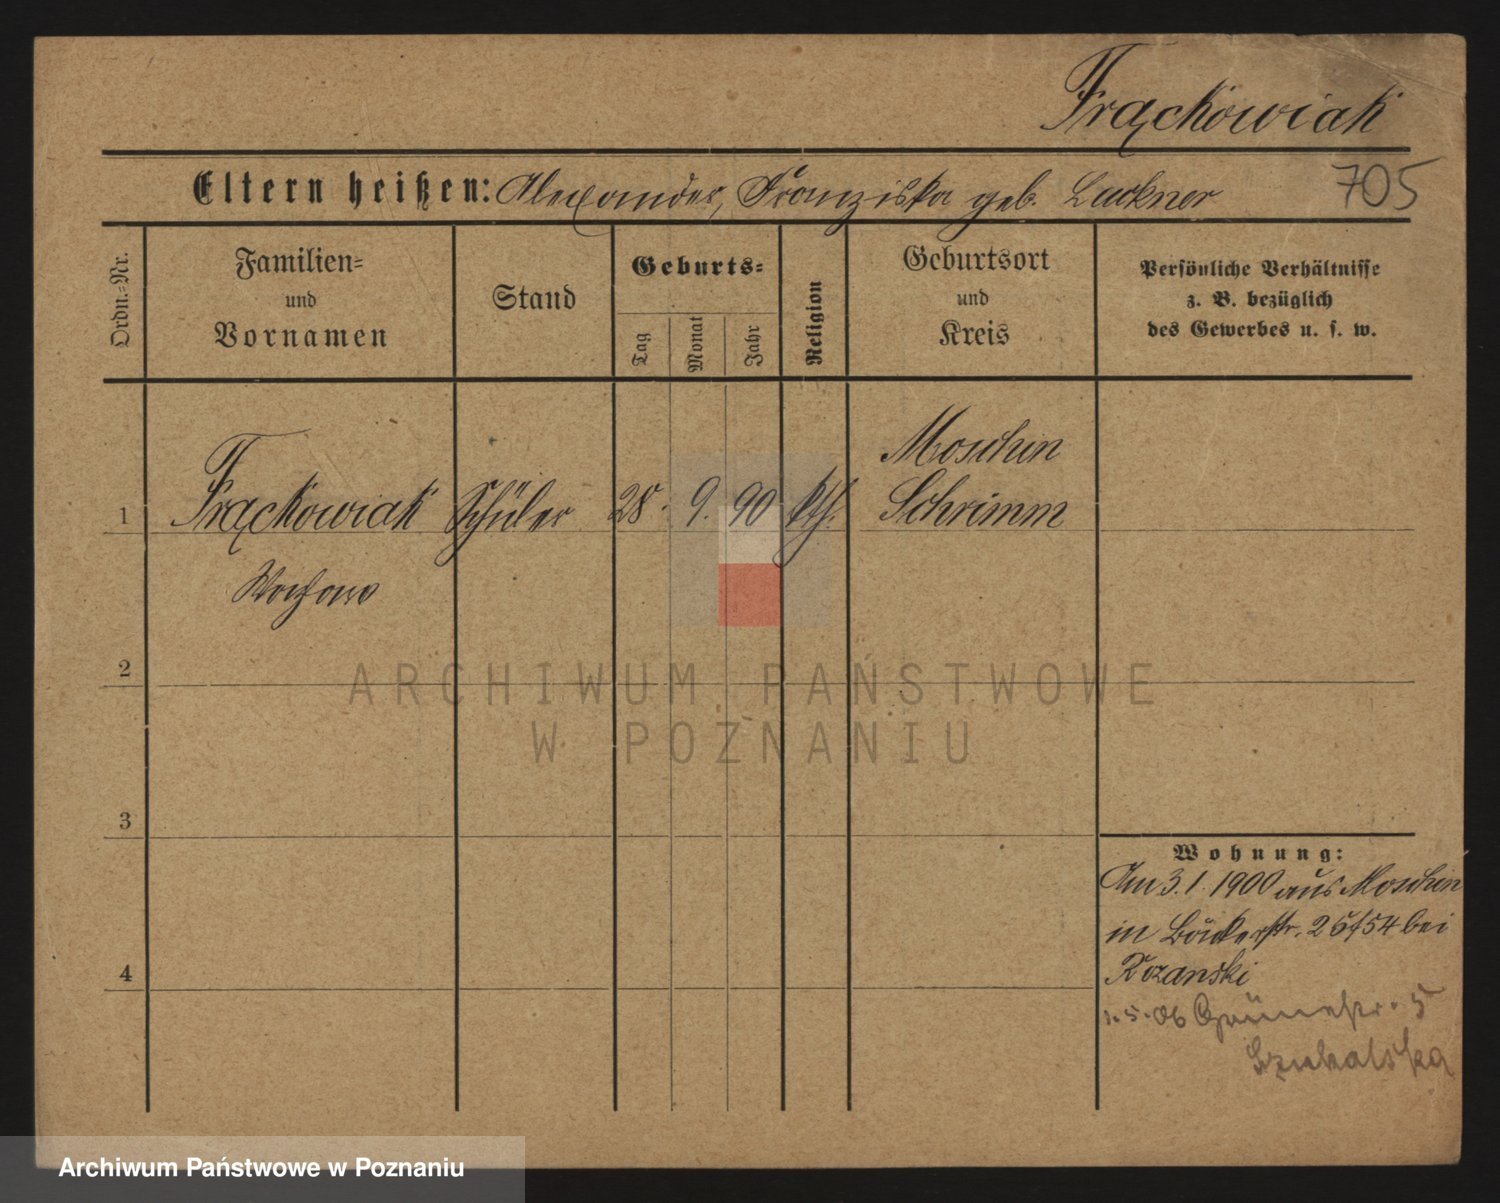 Frąckowiak
Eltern heißen: Alexander, Franziska geb. Luckner
705
Ordn.-Nr.
Familien-
und
Vornamen
Stand
Geburts-
Tag
Monat
Jahr
Religion
Geburtsort
und
Kreis
Persönliche Verhältnisse
z. B. bezüglich
des Gewerbes u. s. w.
1
Frąckowiak
Schüler
28.
9.
90
kth.
Moschin
Schrimm
2
3
4
Wohnung:
Am 3.1.1900 aus Moschin
in Bäckerstr. bei
1.5.06 Grünestr. 5
Szukalska
ARCHIWUM PAŃSTWOWE
W POZNANIU
Archiwum Państwowe w Poznaniu